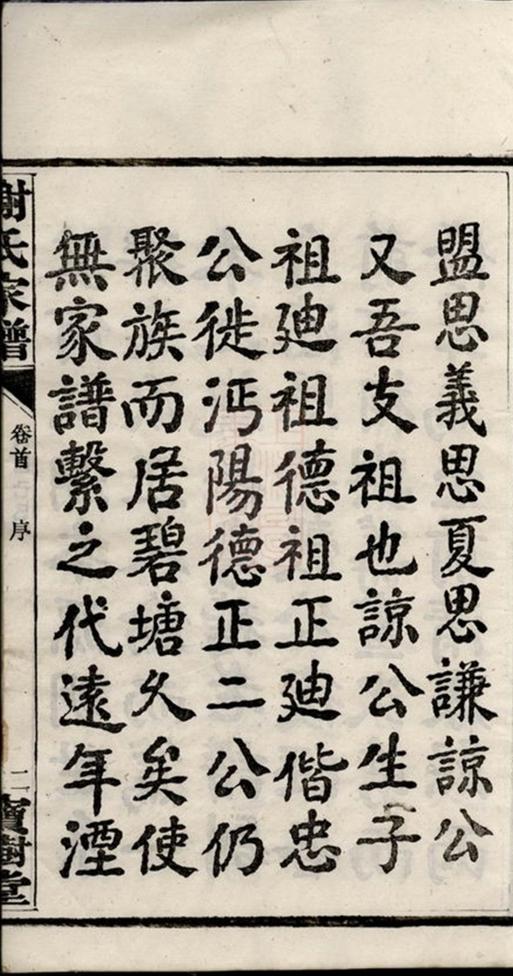 盟思義思夏思謙諒公
又吾支祖也諒公生子
祖廸祖德祖正廸偕忠
公徙沔陽德正二公仍
聚族而居碧塘久矣使
無家譜繫之代遠年湮
謝氏家譜
卷首 序
二
寶樹堂